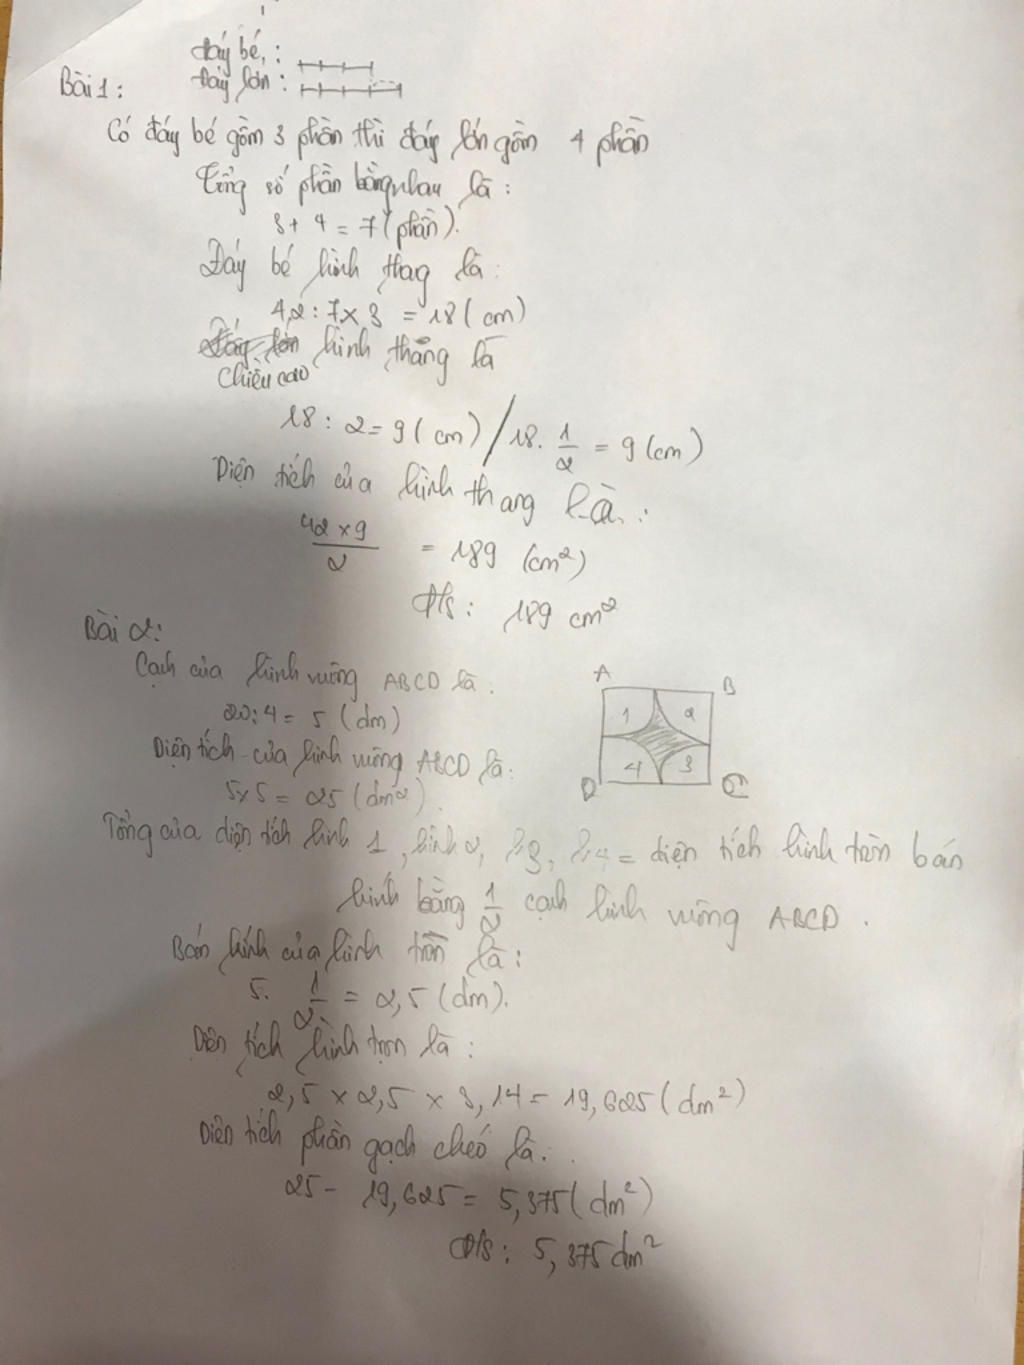 đáy bé :
Bài 1: Đáy lớn :
Có đáy bé gồm 3 phần thì đáy lớn gồm 4 phần
Tổng số phần bằng nhau là :
3 + 4 = 7 (phần).
Đáy bé hình thag là :
42 : 7 x 3 = 18 ( cm)
Đáy lớn hình thang là
Chiều cao
18 : 2 = 9 ( cm) / 18. 1/2 = 9 (cm)
Diện tích của hình thang là :
42 x 9 / 2 = 189 (cm²)
Đ/s : 189 cm²
Bài 2:
Cạnh của hình vuông ABCD là :
20 : 4 = 5 (dm)
Diện tích của hình vuông ABCD là :
5 x 5 = 25 (dm²)
A B
1 2
4 3
D C
Tổng của diện tích hình 1, hình 2, h3, h4 = diện tích hình tròn bán
kính bằng 1/2 cạnh hình vuông ABCD .
Bán kính của hình tròn là :
5. 1/2 = 2,5 (dm).
Diện tích hình tròn là :
2,5 x 2,5 x 3,14 = 19,625 (dm²)
Diện tích phần gạch chéo là :
25 - 19,625 = 5,375 (dm²)
Đ/s : 5,375 dm²